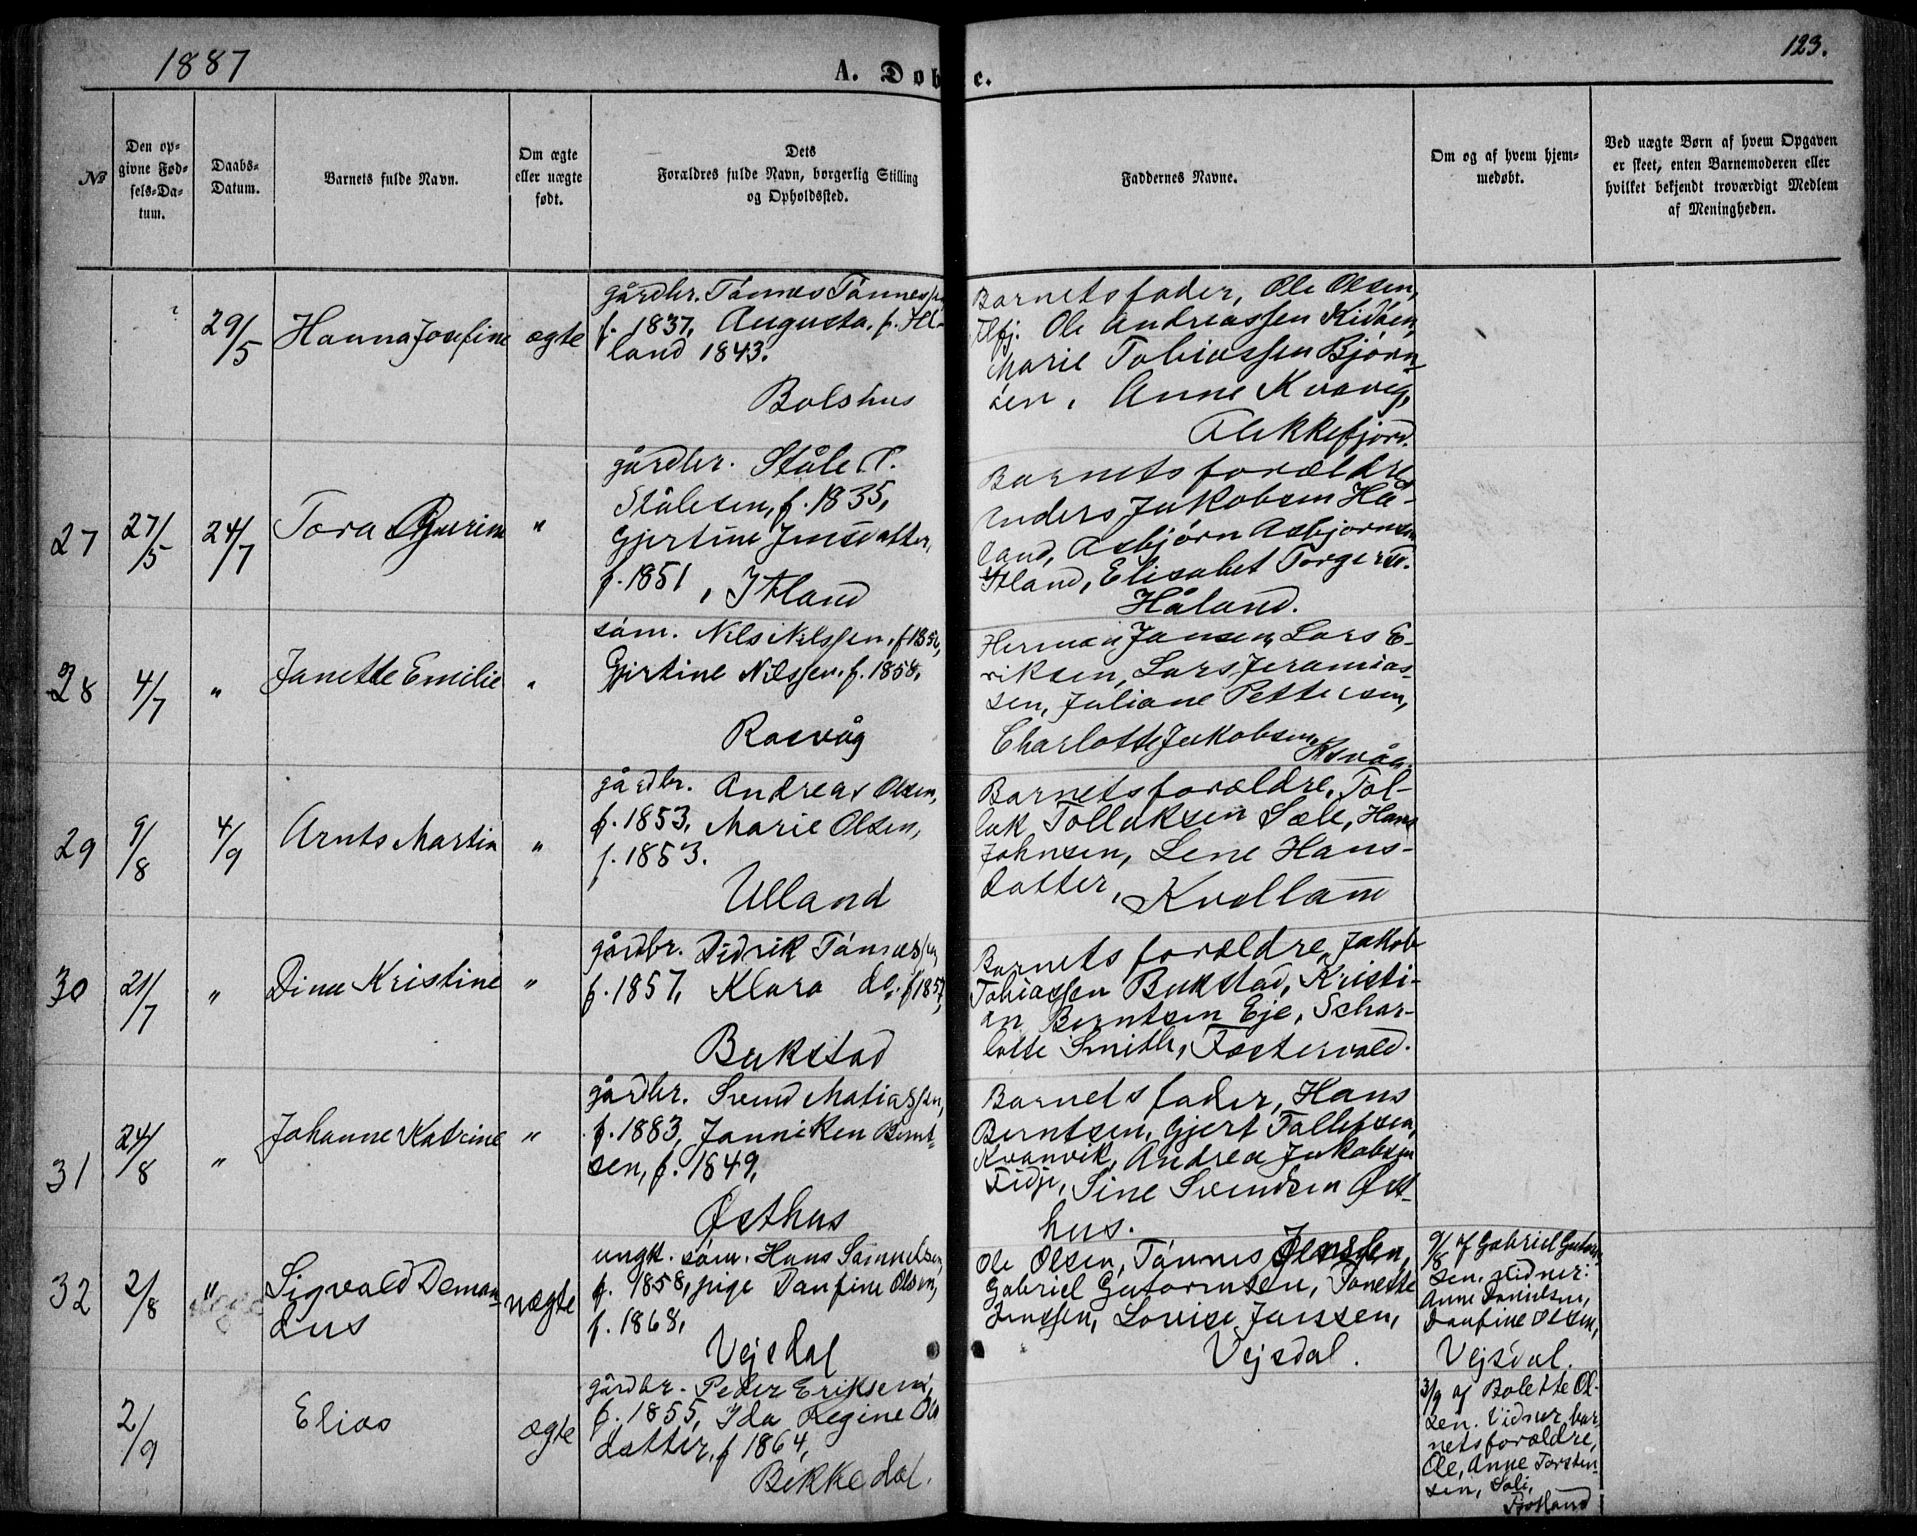 1887
A. Døbte.
123.
№
Den op-
givne Fød-
sels-Da-
tum.
Daabs-
Datum.
Barnets fulde Navn.
Om ægte
eller uægte
født.
Dets
Forældres fulde Navn, borgerlig Stilling
og Opholdssted.
Faddernes Navne.
Om og af hvem hjem-
medøbt.
Ved uægte Børn af hvem Opgaven
er skeet, enten Barnemoderen eller
hvilket bekjendt troværdigt Medlem
af Meningheden.
29/5
Hanna Josefine
ægte
gårdbr. Tónnes Tónnessen
f. 1837, Augusta, f.
land 1843.
Bolshus
Barnets fader, Ole Olsen,
Ole Andreassen Kidöen,
Marie Tobiassen Bjørn-
sen, Anne Kvavig,
Flekkefjord.
27
27/5
24/7
Tora
"
gårdbr. Ståle T.
Stålesen, f. 1835,
Gjertine Jensdatter,
f. 1851, Itland
Barnets forældre
Anders Jakobsen Hå-
land, Asbjørn Asbjørnsen
Itland, Elisabet Torgersd.
Håland.
28
4/7
"
Janette Emilie
"
sóm. Nils Nilssen, f. 1856,
Gjertine Nilssen, f. 1858,
Rasvåg
Herman Jansen, Lars E-
riksen, Lars Jeramias-
sen, Juliane Pettersen,
Charlotte Jakobsen,
Rasvåg.
29
9/8
4/9
Arnts Martin
"
gårdbr. Andreas Olsen,
f. 1853, Marie Olsen,
f. 1853.
Ulland
Barnets forældre, Tol-
lak Tollaksen Sæle, Hans
Johnsen, Lene Hans-
datter, Kvellann
30
21/7
"
Dina Kristine
"
gårdbr. Didrik Tónnessen
f. 1857, Klara do. f. 1857,
Bukstad
Barnets forældre, Jakob
Tobiassen Bukstad, Kristi-
an Berntsen Eje, Schar-
lotte Smith, Fostervold.
31
24/8
"
Johanne Katrine
"
gårdbr. Svend Matiassen,
f. 1883, Janniken Bernt-
sen, f. 1849,
Østhus
Barnets fader, Hans
Berntsen, Gjert Tallefsen,
Kvanvik, Andrea Jakobsen
Fidje, Sine Svendsen Øst-
hus.
32
2/8
"
Sigvald Deman-
dus
uægte
ungk. sóm. Hans Samuelsen,
f. 1858, pige Danfine Olsen,
f. 1868,
Vejsdal
Ole Olsen, Tónnes
Gabriel Gutormsen, Tonette
Jenssen, Lovise Janssen,
Vejsdal.
9/8 af Gabriel Gutorm-
sen. Vidner:
Anne Danielsen,
Danfine Olsen,
Vejsdal.
2/9
Elias
ægte
gårdbr. Peder Eriksen,
f. 1855, Ida Regine Ols-
datter, f 1864,
Bekkedal.
3/9 af Bolette Ol-
sen. Vidner, bar-
nets forældre,
Ole, Anne Torsten-
sen,